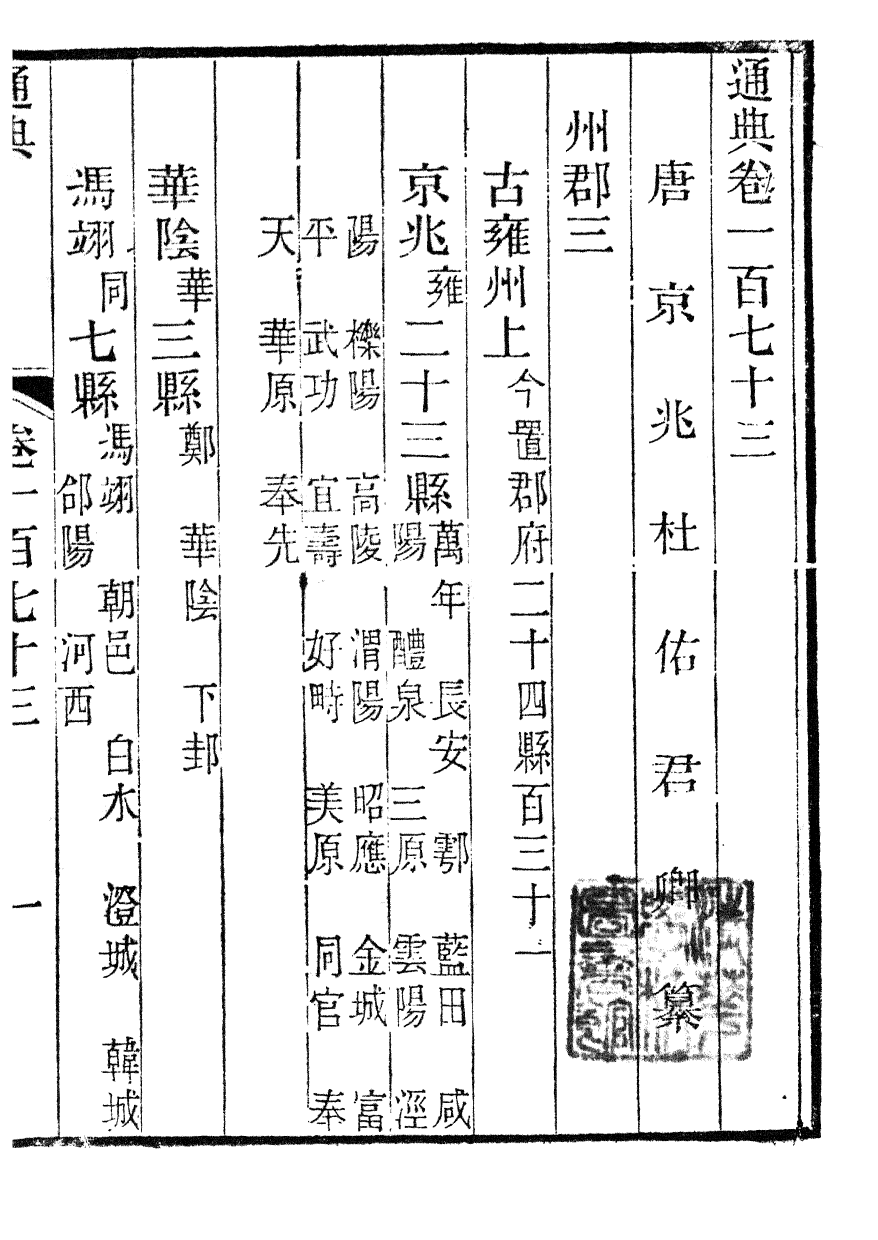 通典卷一百七十三
唐京兆杜佑君卿纂
州郡三
古雍州上今置郡府二十四縣百三十一
京兆雍二十三縣萬年 長安 鄠 藍田 咸
陽 醴泉 三原 雲陽 涇
陽 櫟陽 高陵 渭陽 昭應 金城 富
平 武功 宜壽 好時 美原 同官 奉
天 華原 奉先
華陰華三縣鄭 華陰 下邽
馮翊同七縣馮翊 朝邑 白水 澄城 韓城
郃陽 河西
通典 卷一百七十三 一